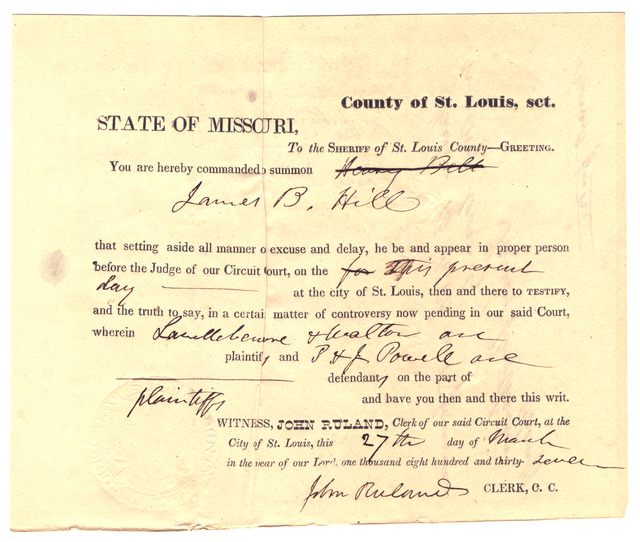 County of St. Louis, sct.
STATE OF MISSOURI,
To the SHERIFF of St. Louis County—GREETING.
You are hereby commanded o summon Henry Belt
James B. Hill
that setting aside all manner o excuse and delay, he be and appear in proper person
before the Judge of our Circuit Court, on the for This present
day
at the city of St. Louis, then and there to TESTIFY,
and the truth to say, in a certain matter of controversy now pending in our said Court,
wherein & Walton are
plaintiffs and P & J Powell are
defendants on the part of
plaintiffs and have you then and there this writ.
WITNESS, JOHN RULAND, Clerk of our said Circuit Court, at the
City of St. Louis, this 27th day of March
in the year of our Lord, one thousand eight hundred and thirty- seven
John Ruland CLERK, C. C.